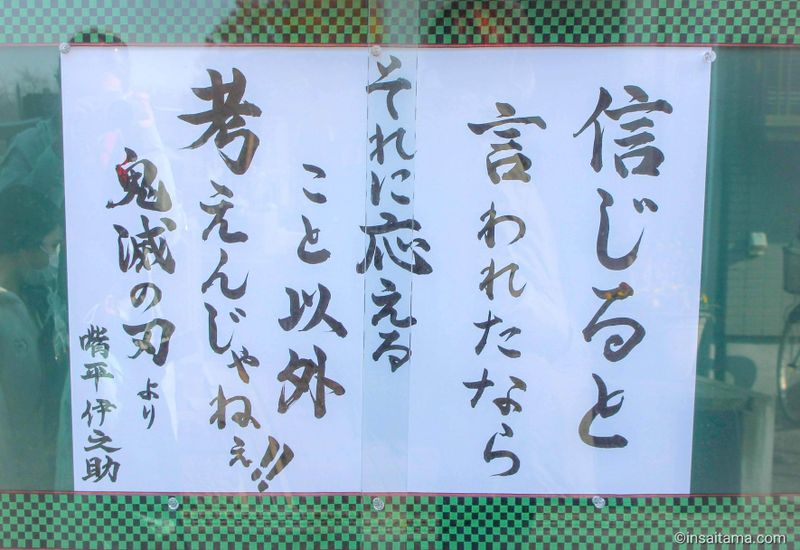 信じると
言われたなら
それに応える
こと以外
考えんじゃねぇ!!
鬼滅の刃より
嘴平伊之助
©insaitama.com